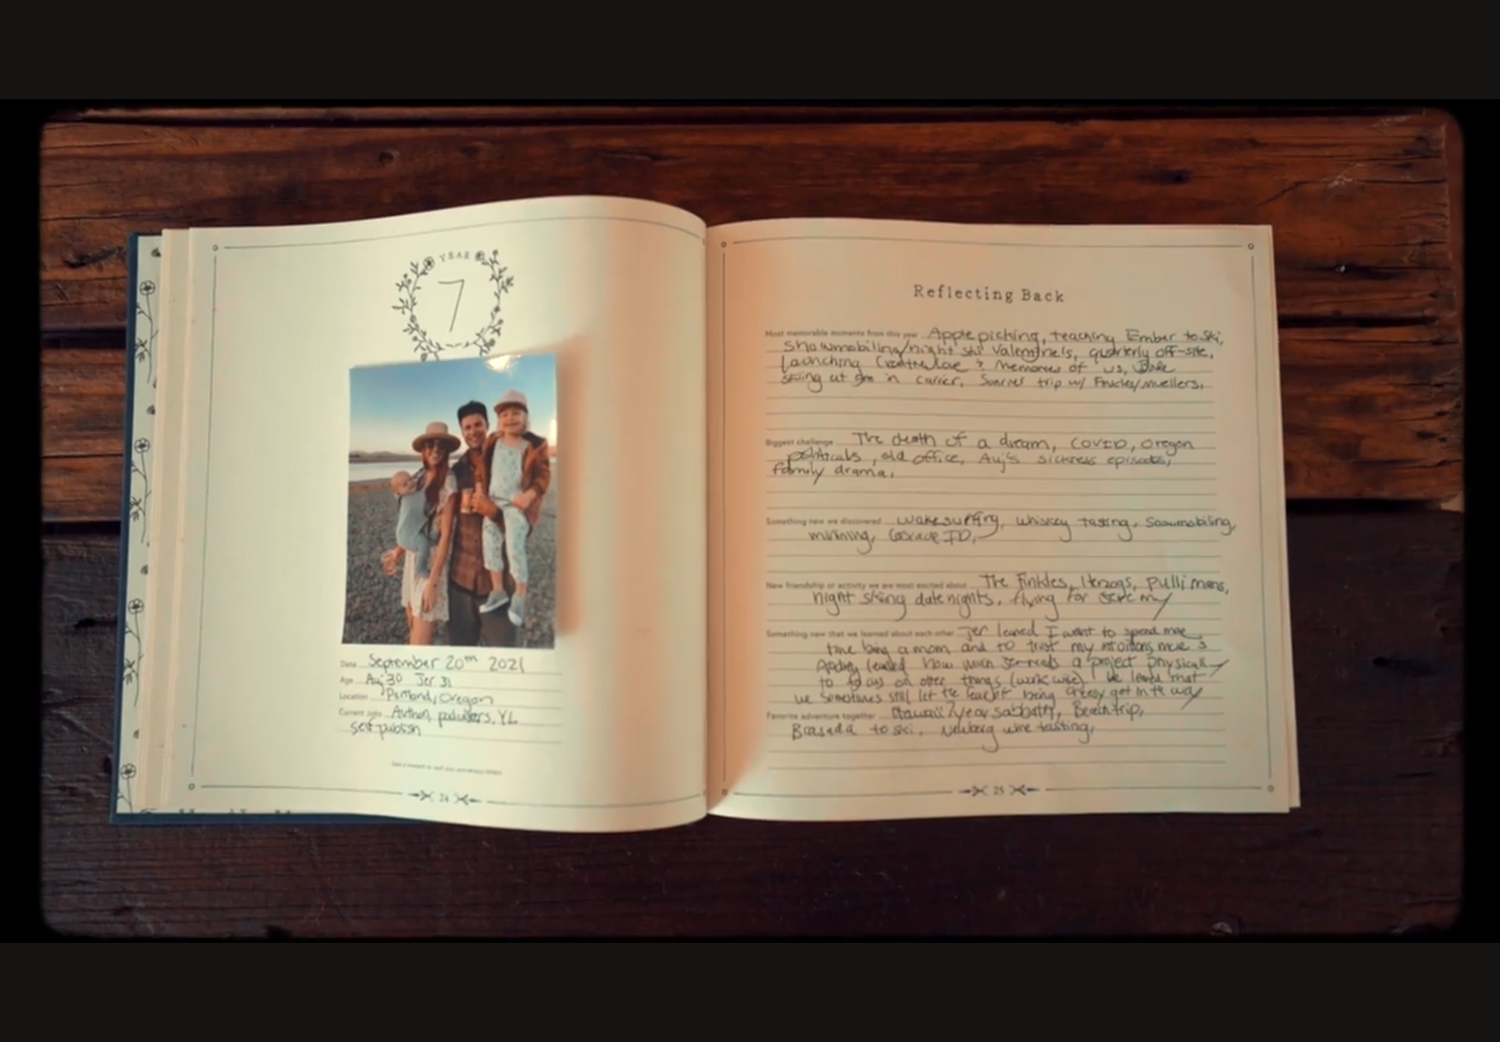 YEAR
7
Date September 20th 2021
Age Auj 30 Jer 31
Location Portland, Oregon
Current Jobs Author, podcasters, YL
self-publish
24
Reflecting Back
Most memorable moments from this year Apple picking, teaching Ember to ski,
snowmobiling/night ski Valentine's, quarterly off-site,
launching & Memories of us,
skiing at in carrier. Sunriver trip w/ Finkles/Muellers.
Biggest challenge The death of a dream, COVID, Oregon
politicals, old office, Auj's sickness episodes,
family drama.
Something new we discovered Wakesurfing, whiskey tasting, snowmobiling,
mining,
New friendship or activity we are most excited about The Finkles, Herzogs, Pullimans,
night skiing date nights, flying for Jeremy
Something new that we learned about each other Jer learned I want to spend more
time being a mom and to trust my intuitions more
Audrey learned how much Jer needs a project physically
to focus on other things (work wise). We learned that
we sometimes still let the fear of being cheesy get in the way
Favorite adventure together Hawaii 7 year sabbath, trip,
Brasada to ski, Newberg wine tasting,
25